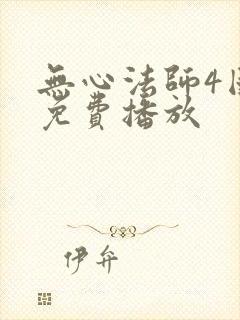 無心法師4
免費播放
伊弁